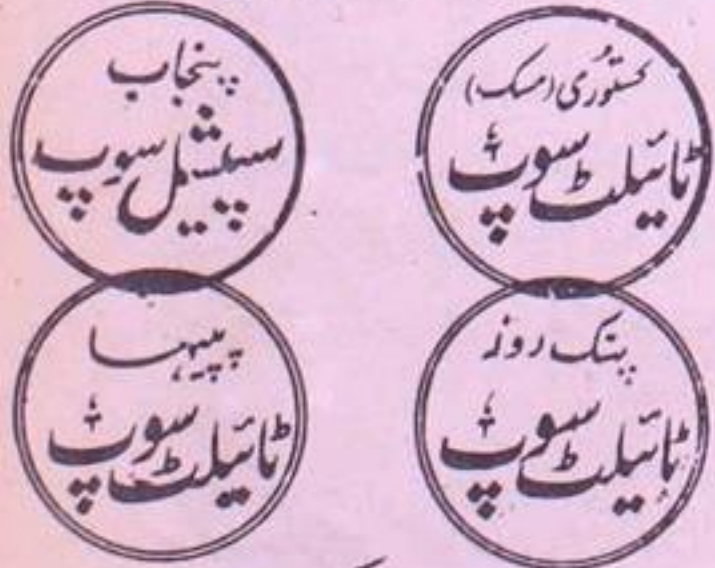 کستوُری (مسک)
ٹائیلٹ سوپ
پنجاب
سپیشیل سوپ
پنک روز
ٹائیلٹ سوپ
پپیہا
ٹائیلٹ سوپ